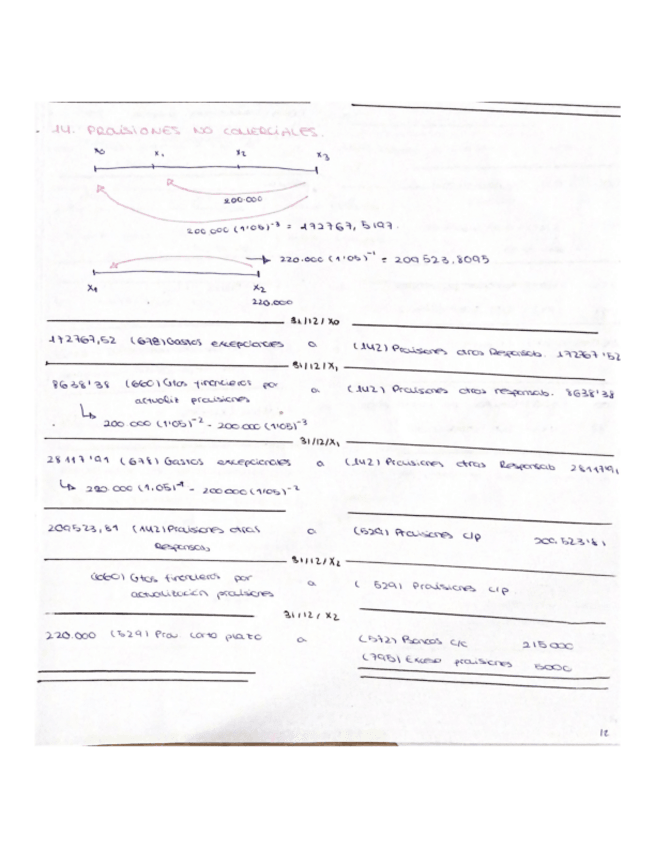 14. PROVISIONES NO COMERCIALES.
x0 x1 x2 x3
200.000
200 000 (1'05)⁻³ = 172767, 5197.
220.000 (1'05)⁻¹ = 209523.8095
x1 x2
220.000
31/12/x0
172767,52 (678) Gastos excepcionales a (142) Provisiones otras Responsab. 172767'52
31/12/x1
8638'38 (660) Gtos financieros por a (142) Provisiones otras responsab. 8638'38
actualiz provisiones
200 000 (1'05)⁻² - 200.000 (1'05)⁻³
31/12/x1
28117'91 (678) Gastos excepcionales a (142) Provisiones otras Responsab 28117'91
220.000 (1.05)⁻¹ - 200000 (1'05)⁻²
209523,81 (142) Provisiones otras a (529) Provisiones c/p
Responsab
31/12/x2
(660) Gtos financieros por a (529) Provisiones c/p.
actualización provisiones
31/12/x2
220.000 (529) Prov corto plazo a (572) Bancos c/c 215000
(795) Exceso provisiones 5000
12